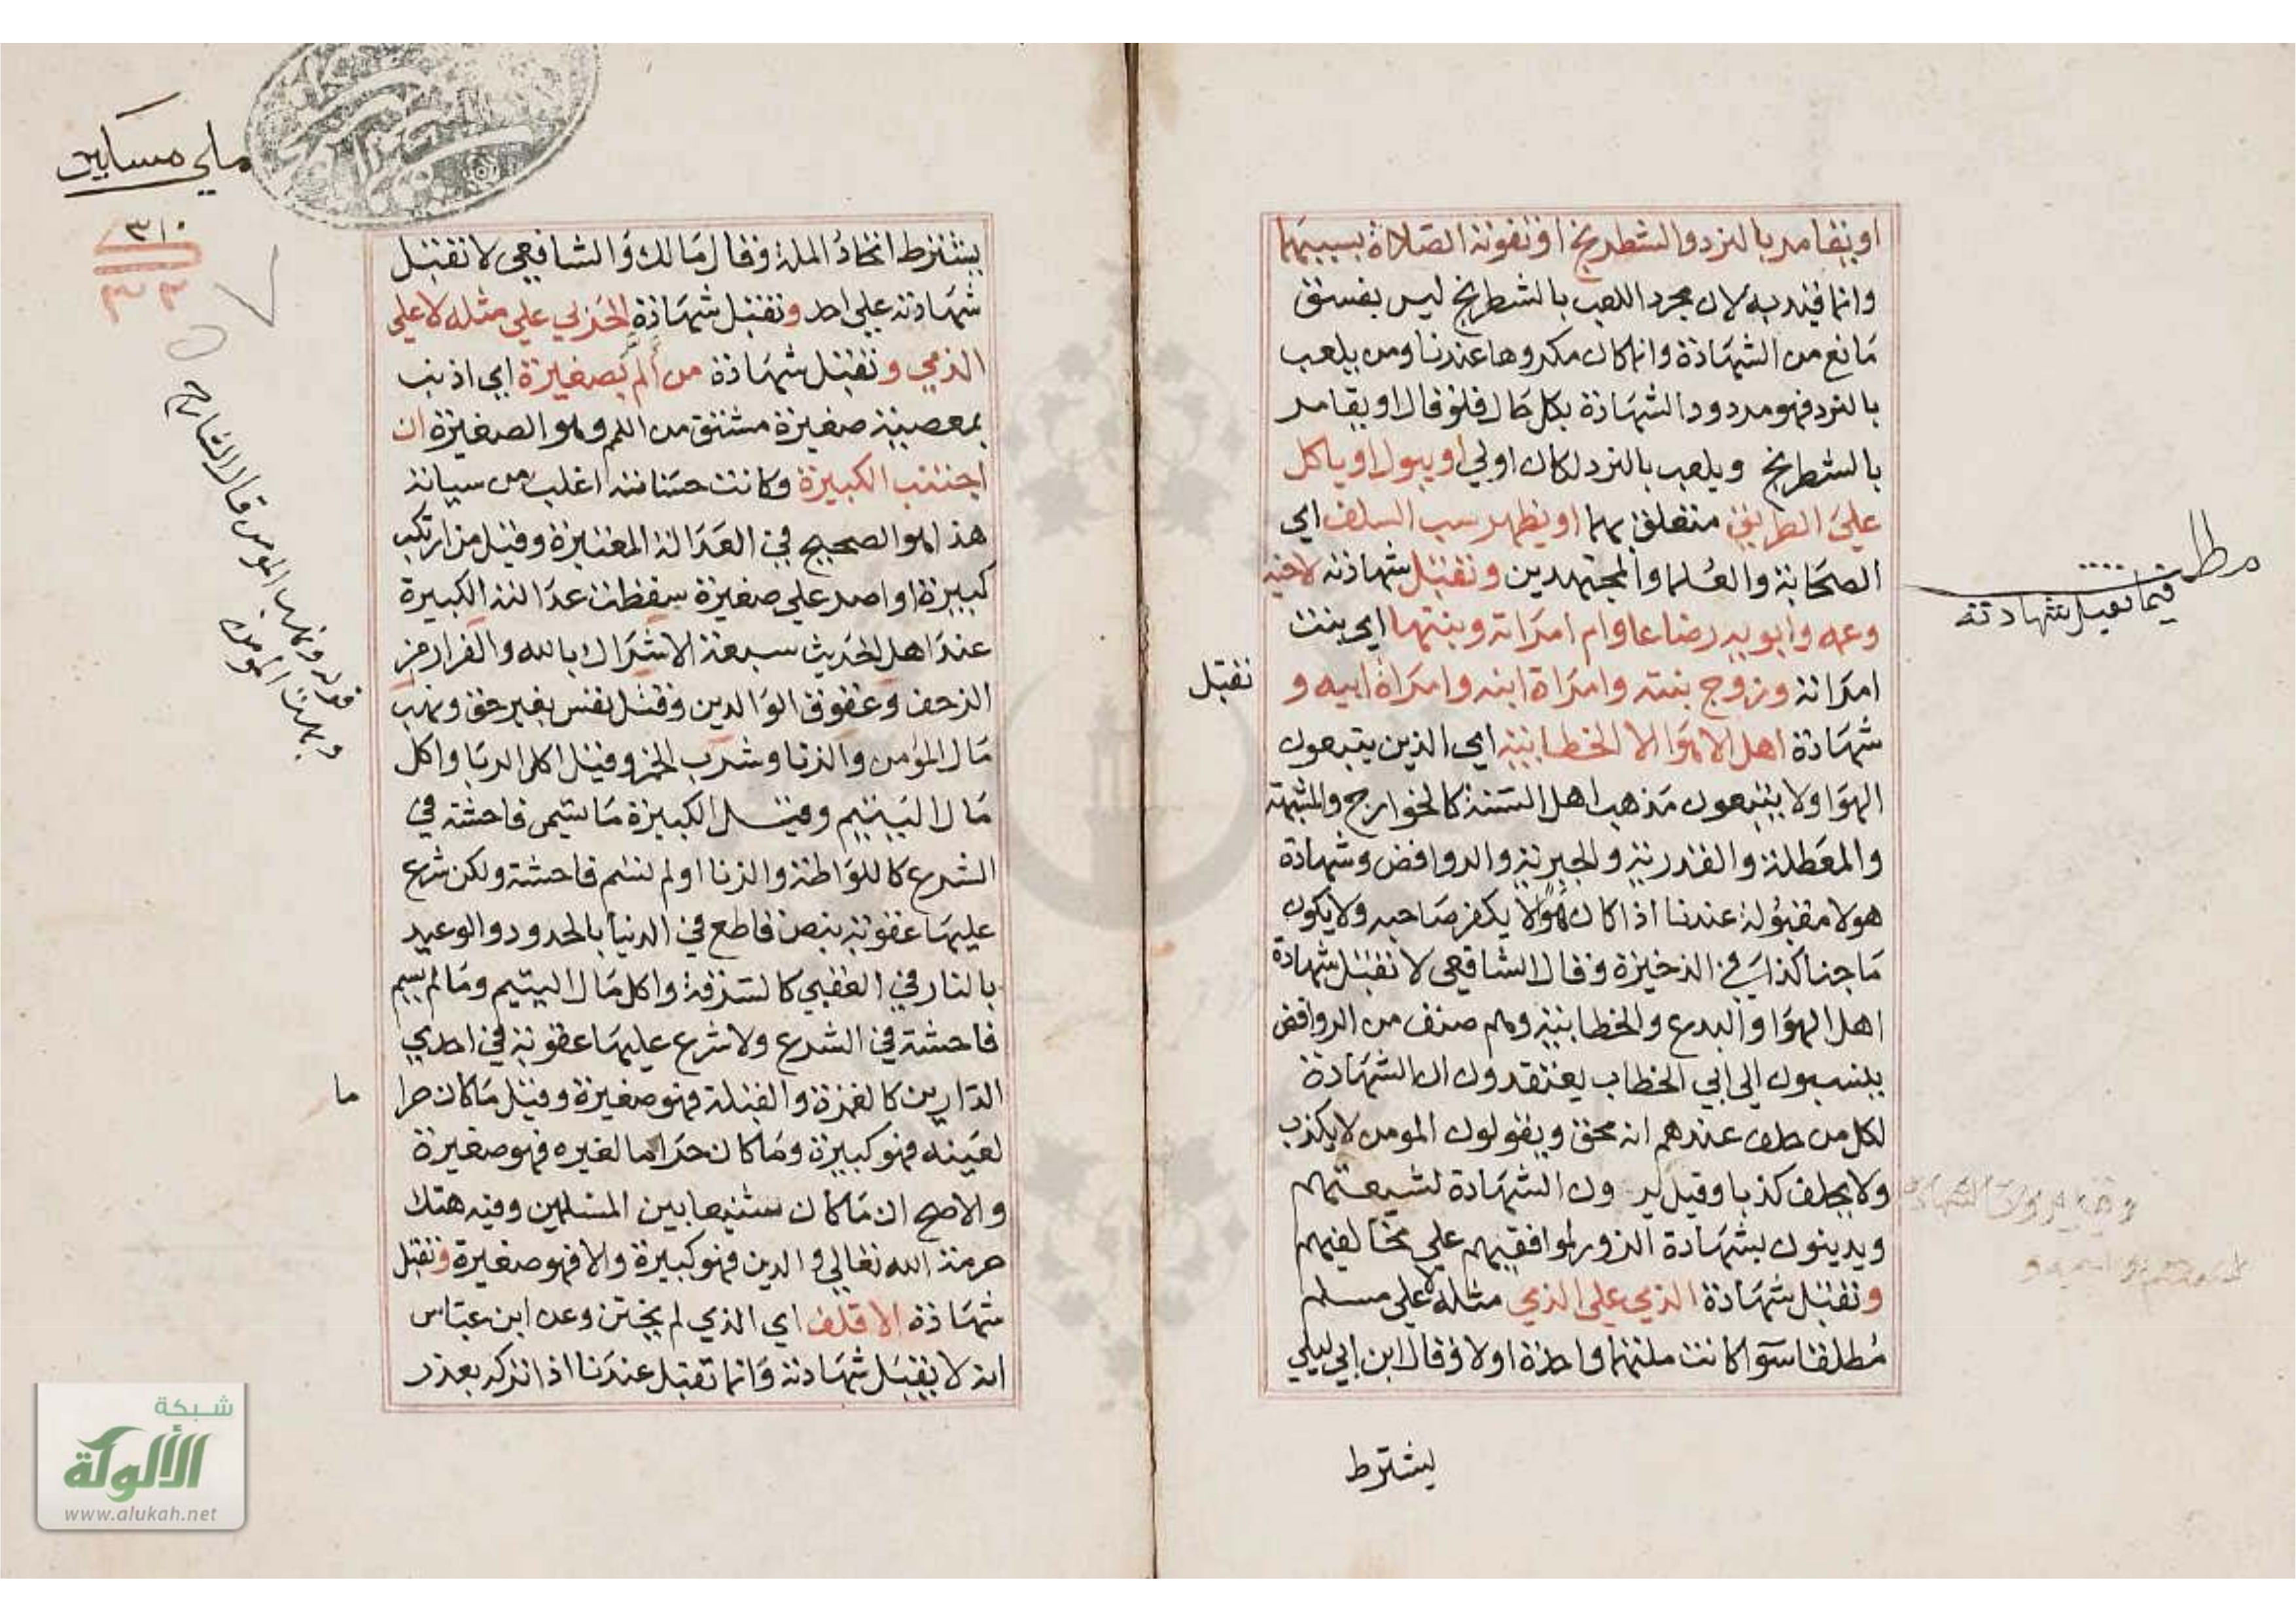 او يقامر بالنرد والشطرنج او تفوته الصلاة بسببهما
وانما قيد به لان مجرد اللعب بالشطرنج ليس بفسق
مانع من الشهادة وانما كان مكروها عندنا ومن يلعب
بالنرد فهو مردود الشهادة بكل حال فلو قال او يقامر
بالشطرنج ويلعب بالنرد لكان اولي او يبول او ياكل
علي الطريق متعلق بهما او يظهر سب السلف اي
الصحابة والعلما والمجتهدين وتقبل شهادته لاخيه
وعمه وابويه رضاعا وام امراته وبنتها اي بنت
امراته وزوج بنته وامراة ابنه وامراة ابيه و
تقبل
شهادة اهل الاهوا الا الخطابية اي الذين يتبعون
الهوا ولا يتبعون مذهب اهل السنة كالخوارج والمشبهة
والمعطلة والقدرية والجبرية والروافض وشهادة
هولا مقبولة عندنا اذا كان هوا لا يكفر صاحبه ولا يكون
ماجنا كذا في الذخيرة وقال الشافعي لا تقبل شهادة
اهل الهوا والبدع والخطابية وهم صنف من الروافض
ينسبون الي ابي الخطاب يعتقدون ان الشهادة
لكل من حلف عندهم انه محق ويقولون المومن لا يكذب
ولا يحلف كذبا وقيل ير ون الشهادة لشيعتهم
ويدينون بشهادة الزور لموافقيهم علي مخالفيهم
وتقبل شهادة الذمي علي الذمي مثله لا علي مسلم
مطلقا سوا كانت ملتهما واحدة اولا وقال ابن ابي ليلي
يشترط
مطلب
فيما تقبل شهادته
يشترط اتحاد الملة وقال مالك والشافعي لا تقبل
شهادته علي احد وتقبل شهادة الحربي علي مثله لا علي
الذمي وتقبل شهادة من الم بصغيرة اي اذنب
بمعصية صغيرة مشتق من اللمم وهو الصغيرة ان
اجتنب الكبيرة وكانت حسناته اغلب من سياته
هذا هو الصحيح في العدالة المعتبرة وقيل من ارتكب
كبيرة او اصر علي صغيرة سقطت عدالته الكبيرة
عند اهل الحديث سبعة الاشراك بالله والفرار من
الزحف وعقوق الوالدين وقتل نفس بغير حق ونهب
مال المؤمن والزنا وشرب الخمر وقيل اكل الربا واكل
مال اليتيم وقيل الكبيرة ما تسمى فاحشة في
الشرع كاللواطة والزنا او لم تسم فاحشة ولكن شرع
عليها عقوبة بنص قاطع في الدنيا بالحدود والوعيد
بالنار في العقبي كالسرقة واكل مال اليتيم وما لم يسم
فاحشة في الشرع ولا شرع عليها عقوبة في احدي
الدارين كالغمزة والقبلة فهو صغيرة وقيل ما كان حرا
ما
لعينه فهو كبيرة وما كان حراما لغيره فهو صغيرة
والاصح ان ما كان شنيعا بين المسلمين وفيه هتك
حرمة الله تعالي والدين فهو كبيرة والا فهو صغيرة وتقبل
شهادة الاقلف اي الذي لم يختتن وعن ابن عباس
انه لا يقبل شهادته وانما تقبل عندنا اذا تركه بعذر
٣١٠
٣٣
شبكة
الألوكة
www.alukah.net